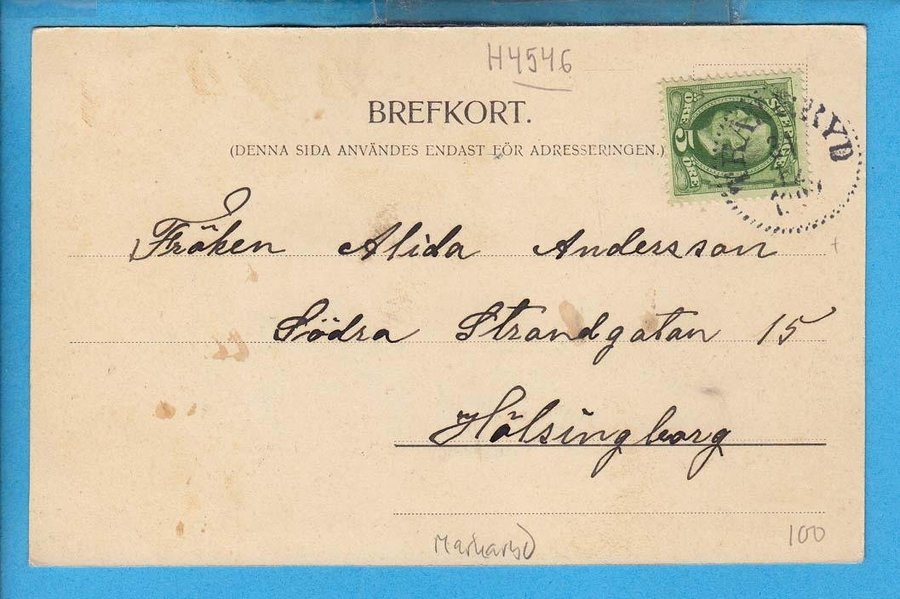 H4546
BREFKORT.
(DENNA SIDA ANVÄNDES ENDAST FÖR ADRESSERINGEN.)
5 ÖRE
SVERIGE
Fröken Alida Andersson
Södra Strandgatan 15
Hälsingborg
Markaryd
100